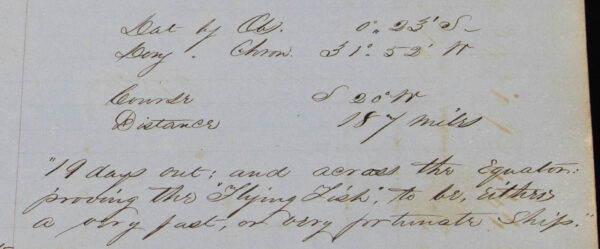 Lat by Obs. 0°. 23' S-
Long . Chron. 31°. 52' W
Course S 20° W
Distance 187 miles
"19 days out; and across the Equator:
proving the "Flying Fish", to be, either
a very fast, or very fortunate Ship."